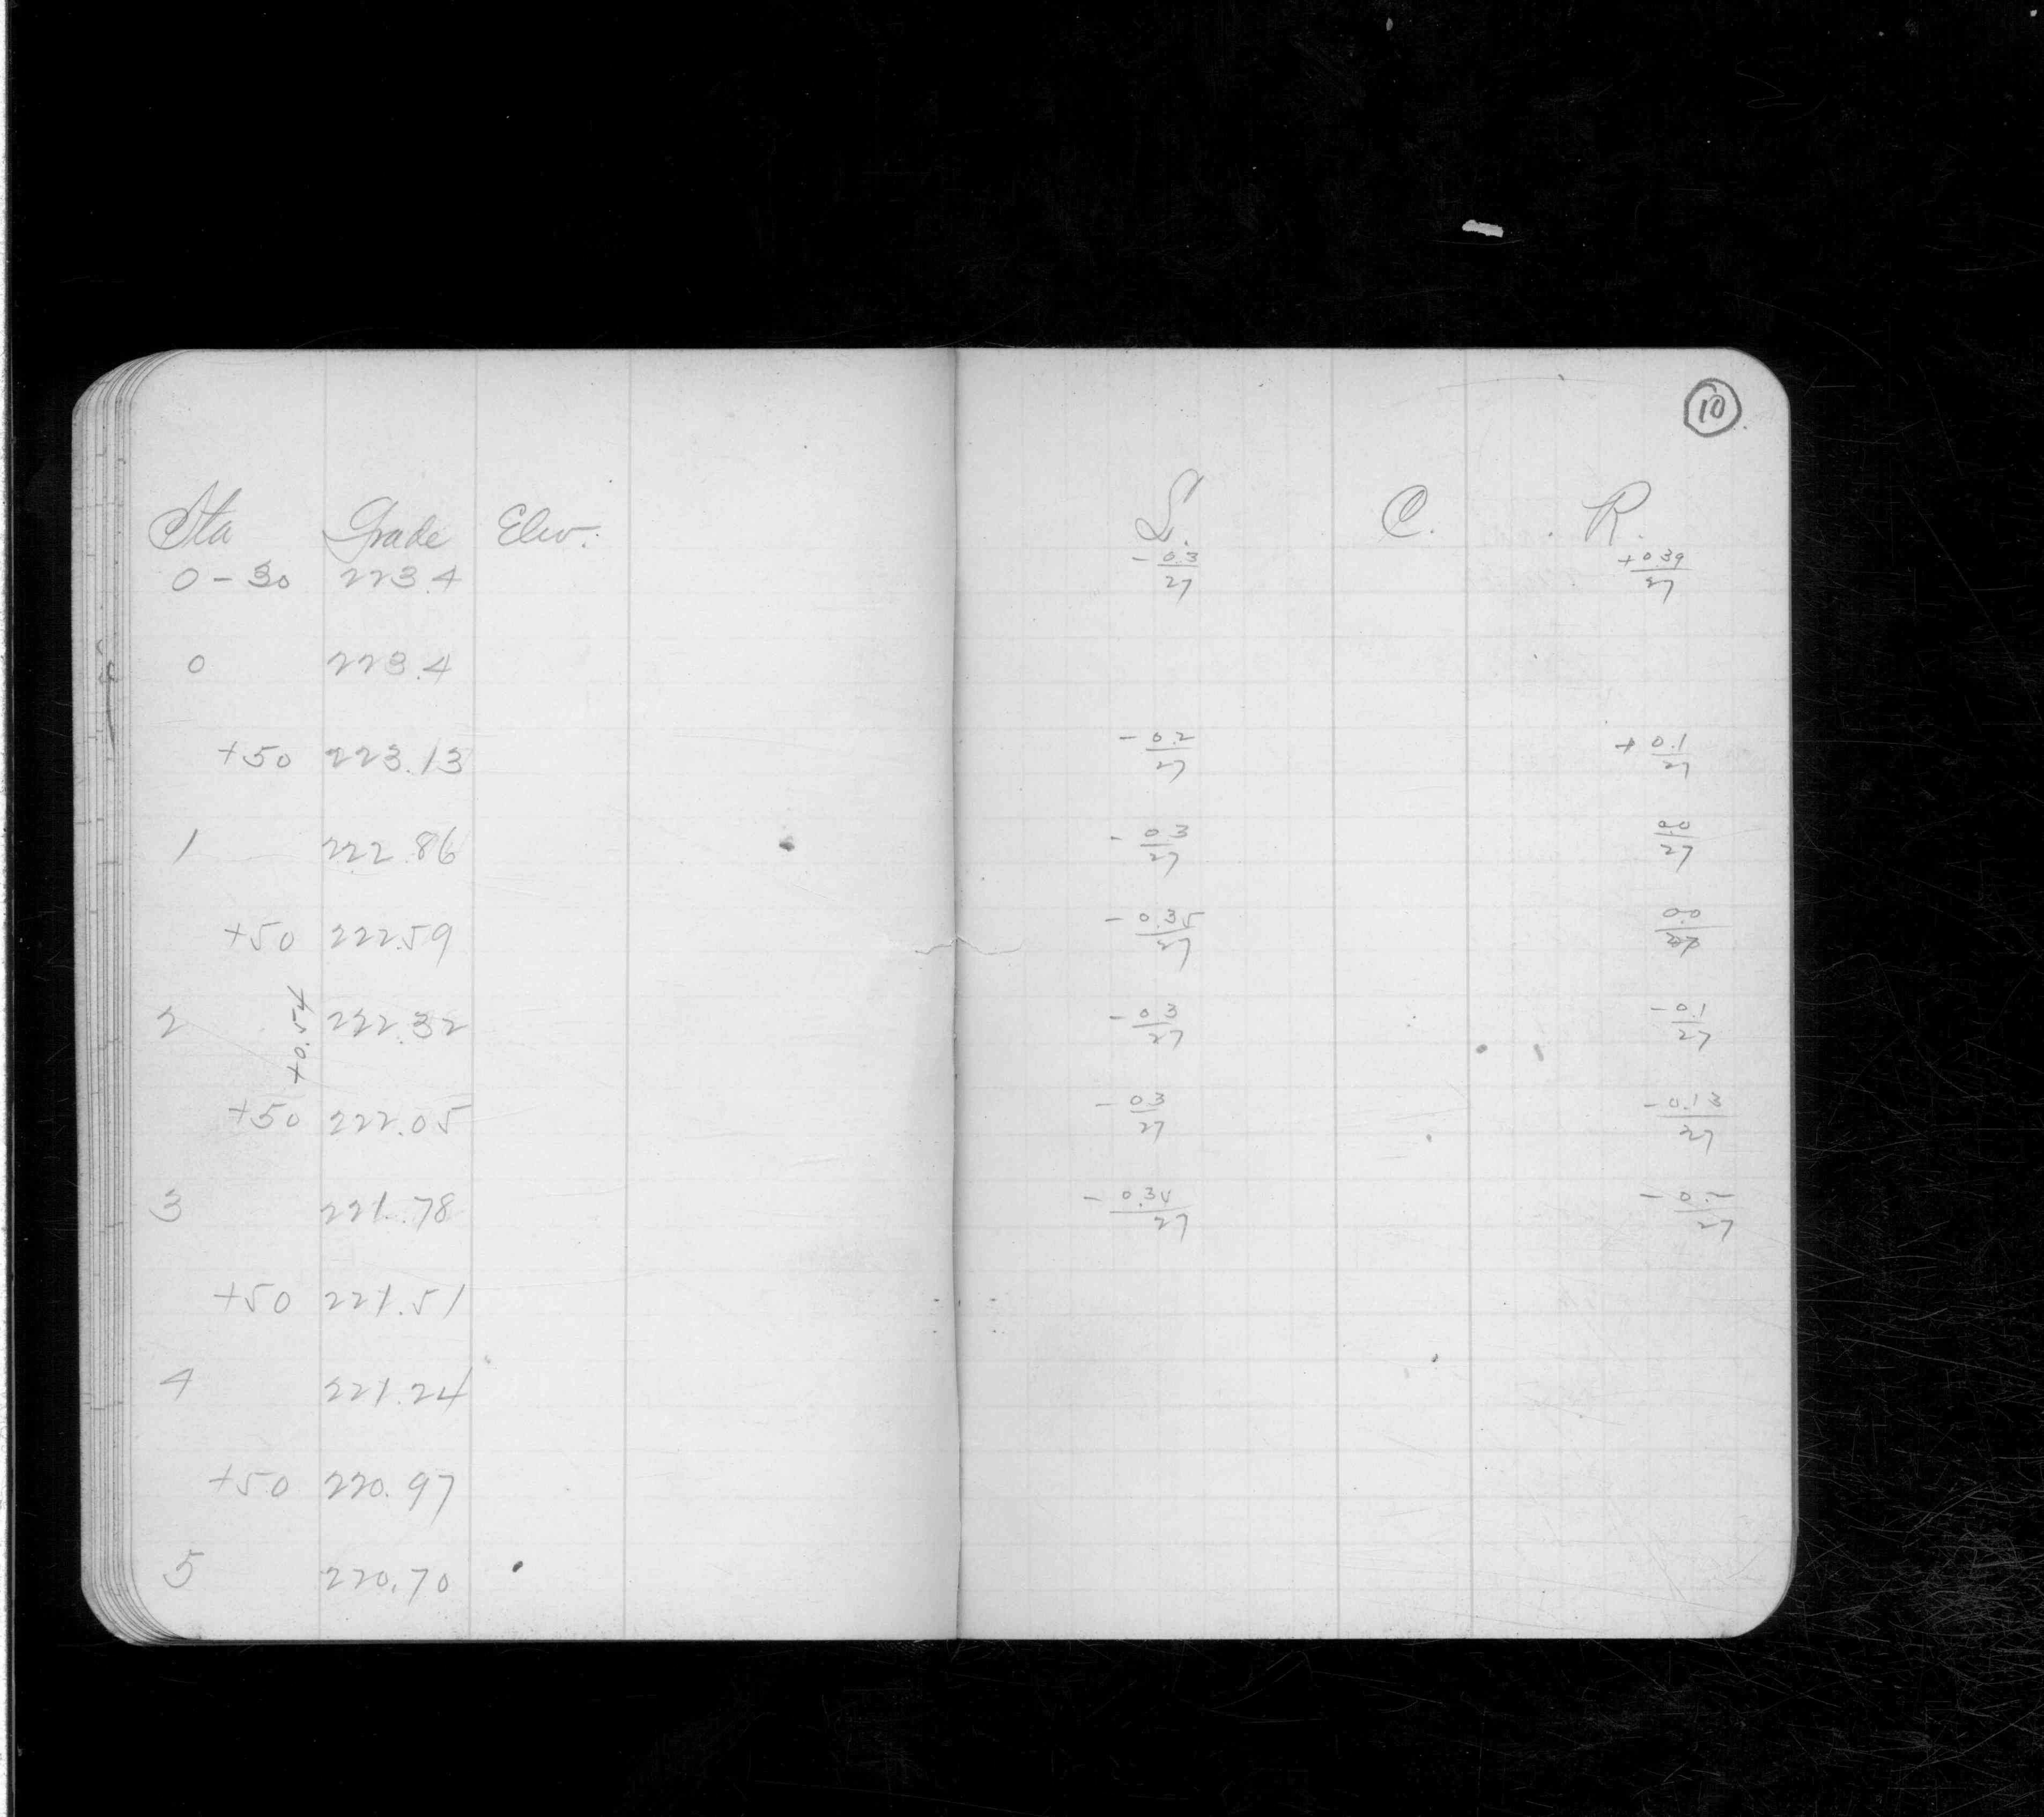 10
Sta Grade Elev. L. C. R.
0-30 223.4 -0.3/27 +0.39/27
0 223.4
+50 223.13 -0.2/27 +0.1/27
1 222.86 -0.3/27 0.0/27
+50 222.59 -0.35/27 0.0/27
2 +0.54 222.32 -0.3/27 -0.1/27
+50 222.05 -0.3/27 -0.13/27
3 221.78 -0.34/27 -0.2/27
+50 221.51
4 221.24
+50 220.97
5 220.70